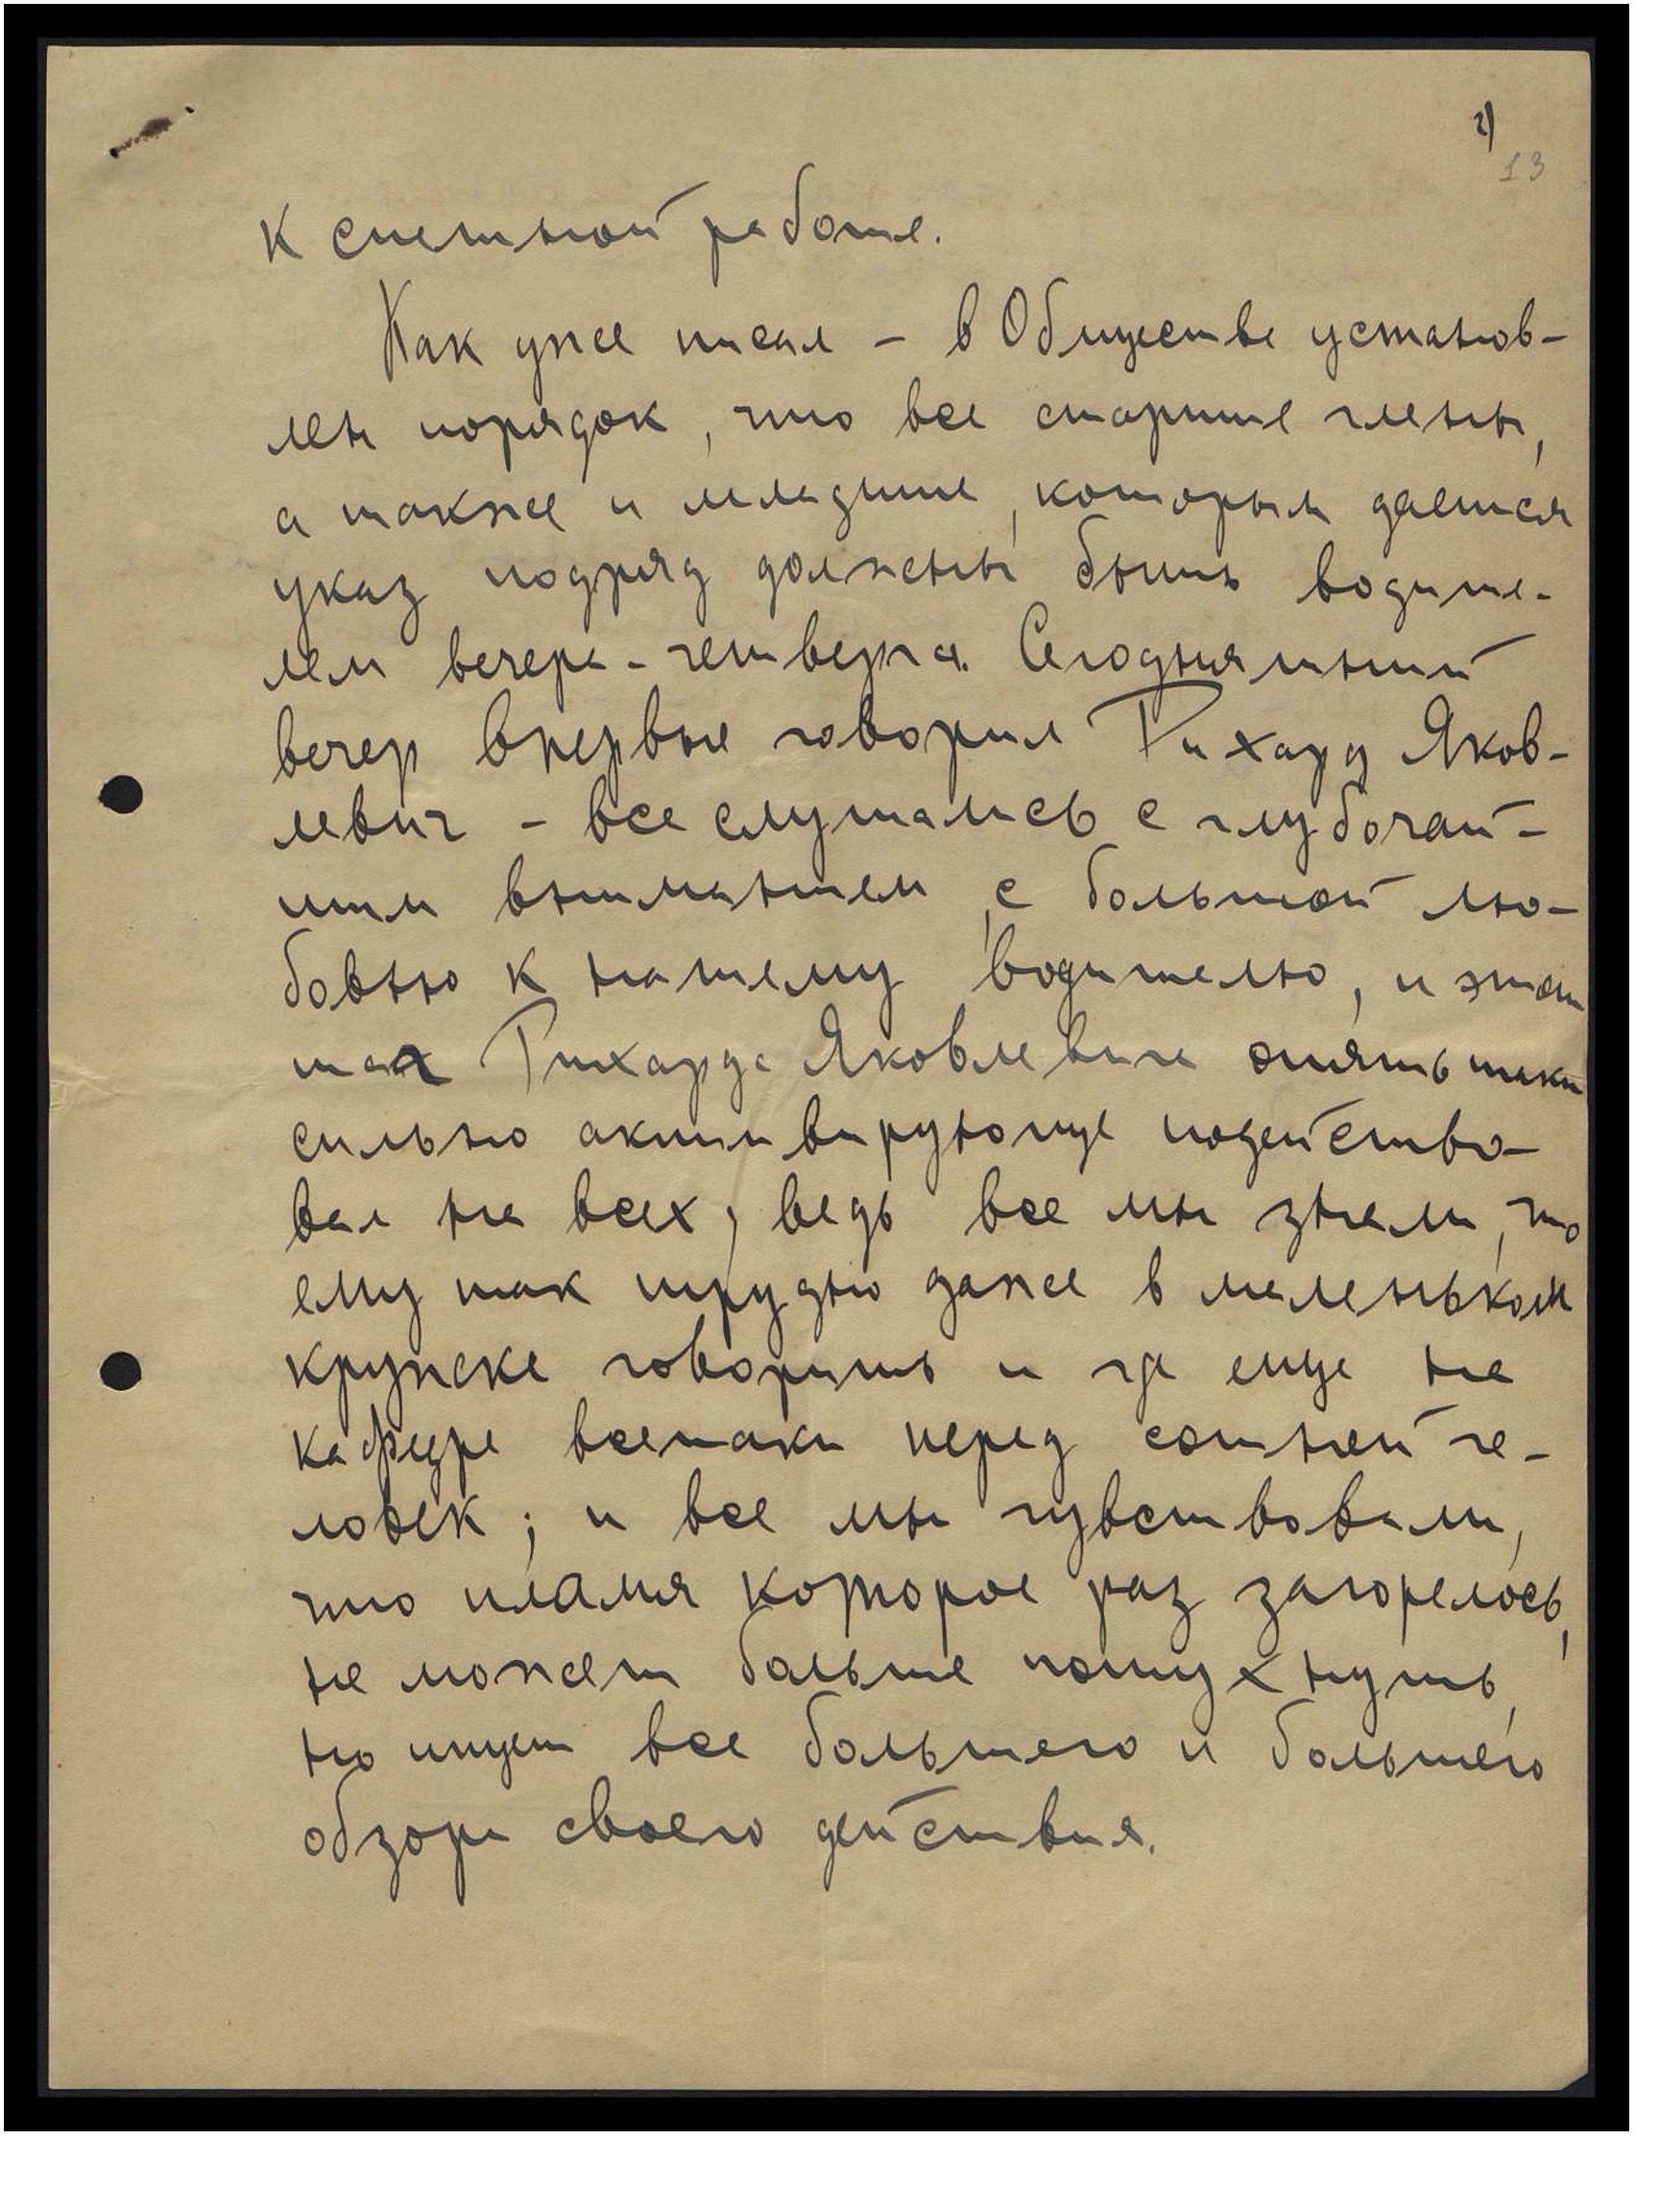 2)
13
к спешной работе.
Как уже писал – в Обществе установ-
лен порядок, что все старшие члены,
а также и младшие, которым дается
указ подряд должны быть водите-
лем вечера - четверга. Сегодняшний
вечер впервые говорил Рихард Яков-
левич – все слушались с глубочай-
шим вниманием, с большой лю-
бовью к нашему водителю, и этот
шаг Рихарда Яковлевича опять таки
сильно активирующе подейство-
вал на всех; ведь все мы знали, что
ему так трудно даже в маленьком
кружке говорить и где еще на
кафедре всетаки перед сотней че-
ловек; и все мы чувствовали,
что пламя которое раз загорелось,
не может больше потухнуть,
но ищет все большего и большего
обзора своего действия.